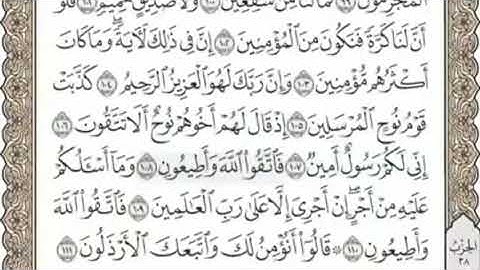 ٱلْمُجْرِمُونَ ٩٩ فَمَا لَنَا مِن شَٰفِعِينَ ١٠٠ وَلَا صَدِيقٍ حَمِيمٍ ١٠١ فَلَوْ
أَنَّ لَنَا كَرَّةً فَنَكُونَ مِنَ ٱلْمُؤْمِنِينَ ١٠٢ إِنَّ فِى ذَٰلِكَ لَأٓيَةً ۖ وَمَا كَانَ
أَكْثَرُهُم مُّؤْمِنِينَ ١٠٣ وَإِنَّ رَبَّكَ لَهُوَ ٱلْعَزِيزُ ٱلرَّحِيمُ ١٠٤ كَذَّبَتْ
قَوْمُ نُوحٍ ٱلْمُرْسَلِينَ ١٠٥ إِذْ قَالَ لَهُمْ أَخُوهُمْ نُوحٌ أَلَا تَتَّقُونَ ١٠٦
إِنِّى لَكُمْ رَسُولٌ أَمِينٌ ١٠٧ فَٱتَّقُوا۟ ٱللَّهَ وَأَطِيعُونِ ١٠٨ وَمَآ أَسْـَٔلُكُمْ
عَلَيْهِ مِنْ أَجْرٍ ۖ إِنْ أَجْرِىَ إِلَّا عَلَىٰ رَبِّ ٱلْعَٰلَمِينَ ١٠٩ فَٱتَّقُوا۟ ٱللَّهَ
وَأَطِيعُونِ ١١٠ ۞ قَالُوٓا۟ أَنُؤْمِنُ لَكَ وَٱتَّبَعَكَ ٱلْأَرْذَلُونَ ١١١
الحزب
٣٨